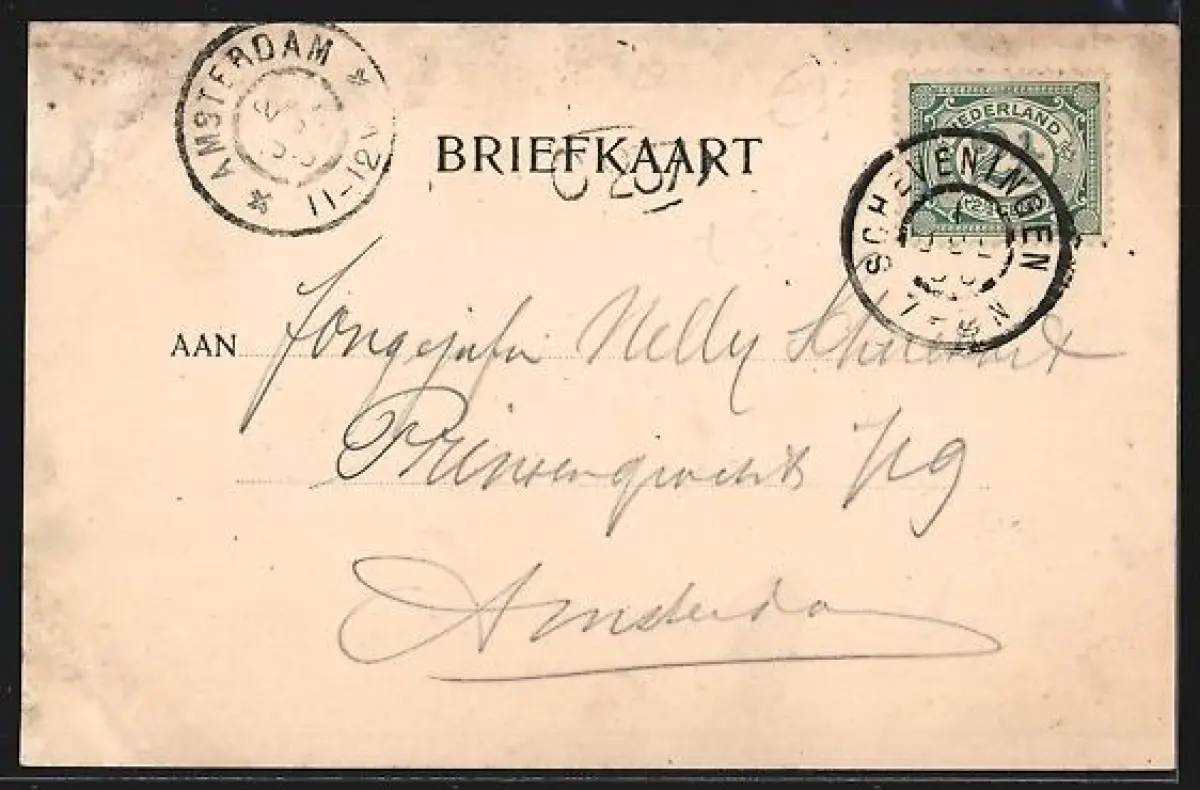 AMSTERDAM
11-12V
BRIEFKAART
NEDERLAND
SCHEVENINGEN
AAN Jongejufr Nelly
Prinsengracht 719
Amsterdam